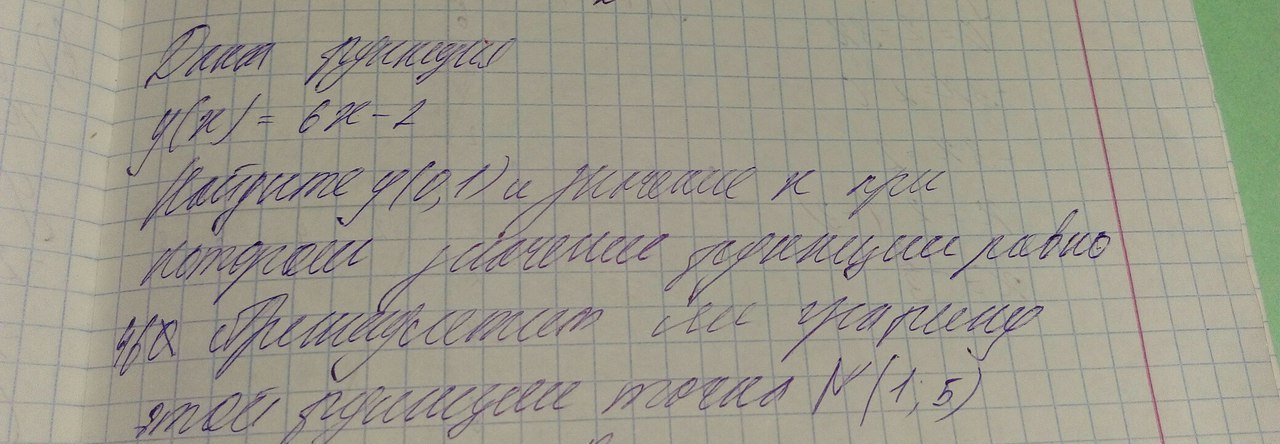 Дана функция
y(x) = 6x - 2
Найдите y(0,1) и значение x при
котором значение функции равно
Принадлежит ли графику
этой функции точка N (1; 5)